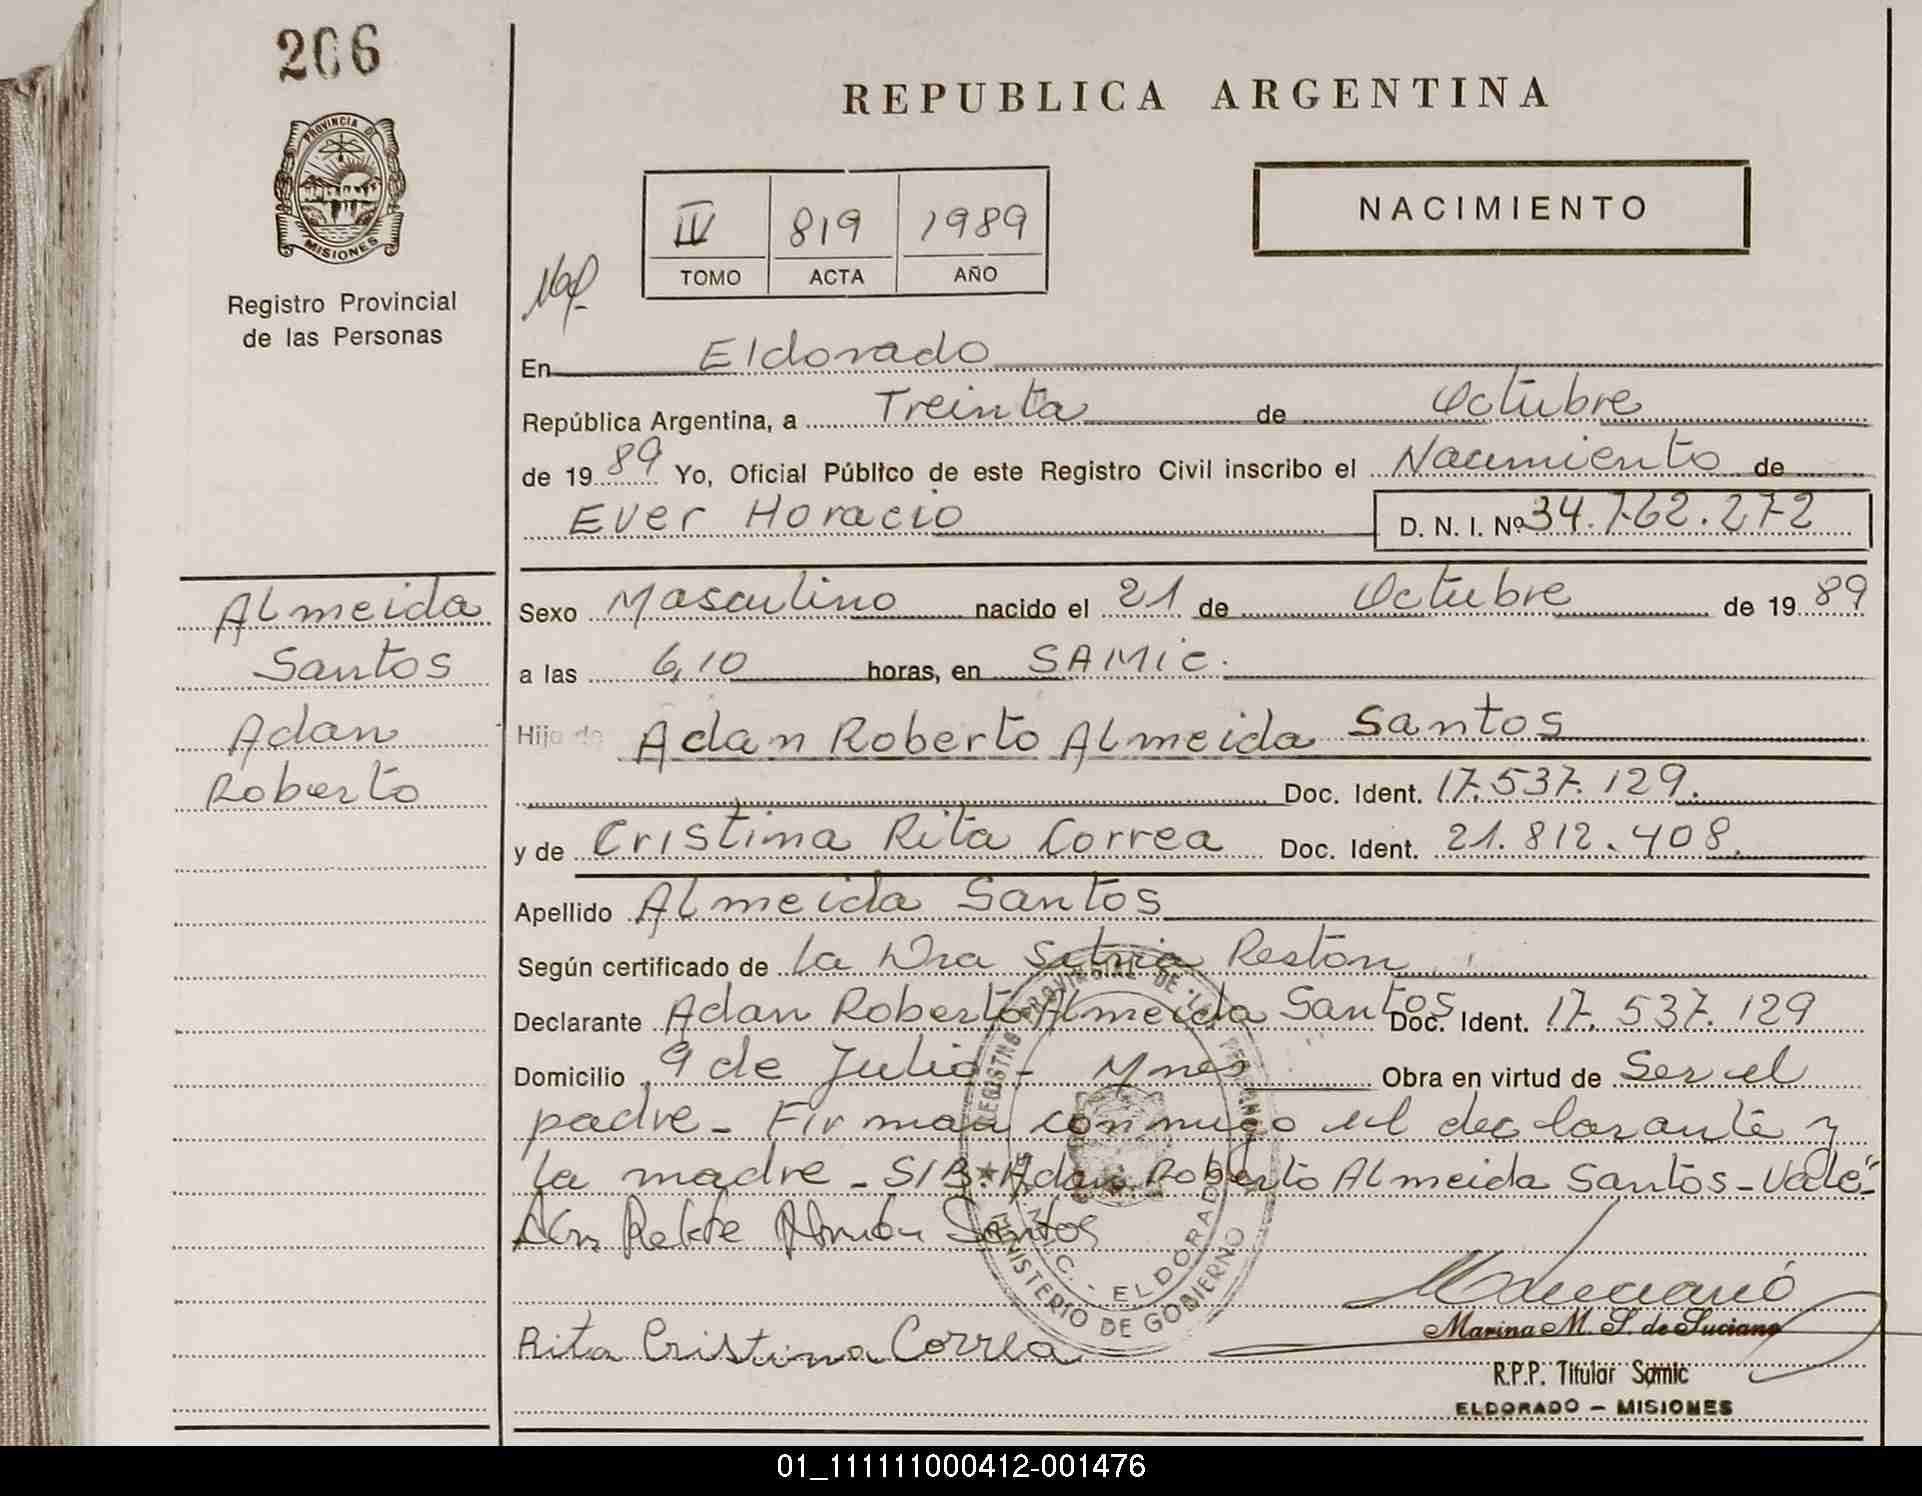 206
PROVINCIA DE
MISIONES
Registro Provincial
de las Personas
REPUBLICA ARGENTINA
IV 819 1989
TOMO ACTA AÑO
NACIMIENTO
En Eldorado
República Argentina, a Treinta de Octubre
de 1989 Yo, Oficial Público de este Registro Civil inscribo el Nacimiento de
Ever Horacio D. N. I. Nº 34.762.272
Almeida
Santos
Adan
Roberto
Sexo Masculino nacido el 21 de Octubre de 1989
a las 6,10 horas, en SAMIC.
Hijo de Adan Roberto Almeida Santos
Doc. Ident. 17.537.129.
y de Cristina Rita Correa Doc. Ident. 21.812.408.
Apellido Almeida Santos
Según certificado de La Dra Silvia Reston
Declarante Adan Roberto Almeida Santos Doc. Ident. 17.537.129
Domicilio 9 de Julio - Mnes Obra en virtud de Ser el
padre - Firman conmigo el declarante y
la madre - S/B: Adan Roberto Almeida Santos - Vale -
Santos
Rita Cristina Correa
REGISTRO PROVINCIAL DE LAS PERSONAS
ELDORADO
MINISTERIO DE GOBIERNO
Marina M. S. de Luciano
R.P.P. Titular Samic
ELDORADO - MISIONES
01_111111000412-001476